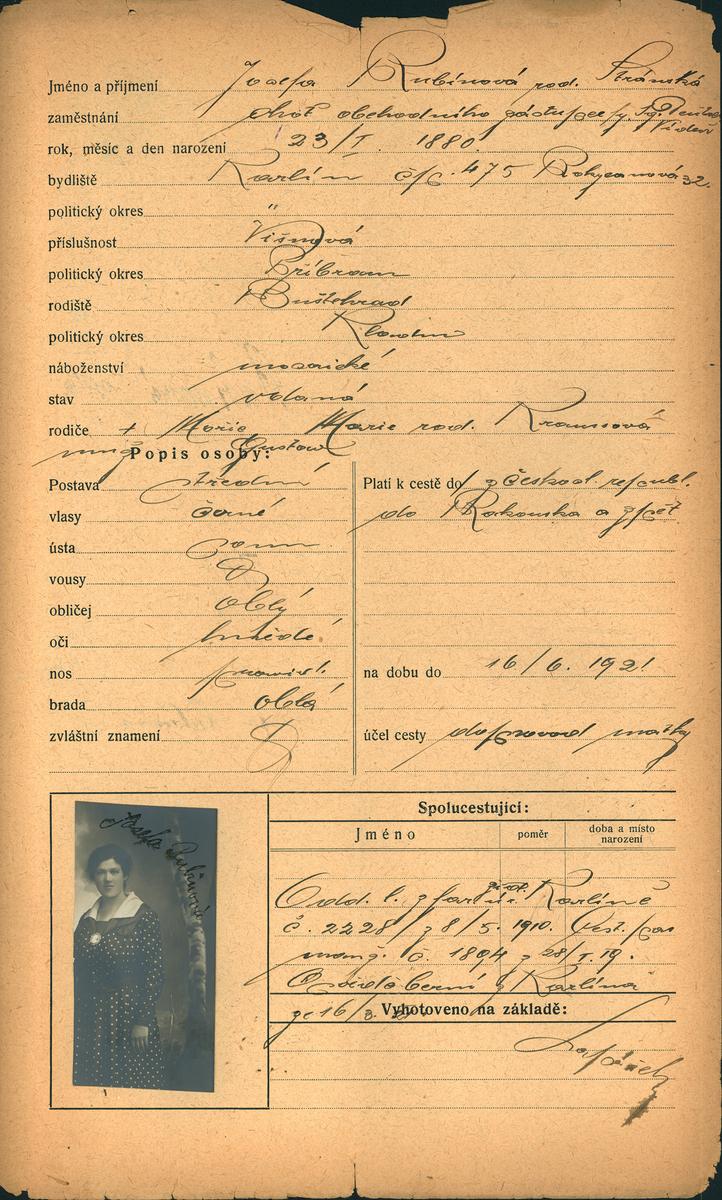 Jméno a příjmení Josefa Rubínová rod. Stránská
zaměstnání choť obchodního zástupce
Vídeň
rok, měsíc a den narození 23/I. 1880.
bydliště Karlín čp. 475 Rokycanova 32.
politický okres "
příslušnost Višňová
politický okres Příbram
rodiště Buštěhrad
politický okres Kladno
náboženství mosaické
stav vdaná
rodiče + Marie rod. Kraussová
muž Gustav
Popis osoby:
Postava střední
vlasy černé
ústa
vousy
obličej oblý
oči hnědé
nos pravid.
brada oblá
zvláštní znamení
Platí k cestě do z Českosl. republ.
do Rakouska a zpět
na dobu do 16/6. 1921
účel cesty doprovod matky
Josefa Rubínová
Spolucestující:
Jméno poměr doba a místo narození
Odd. l. z far. úř. Karlíně
č. 2228 z 8/5. 1910. Cest. pas
manž. č. 1894 z 28/I. 19.
Osvědčení z Karlína
ze 16/3.
Vyhotoveno na základě: